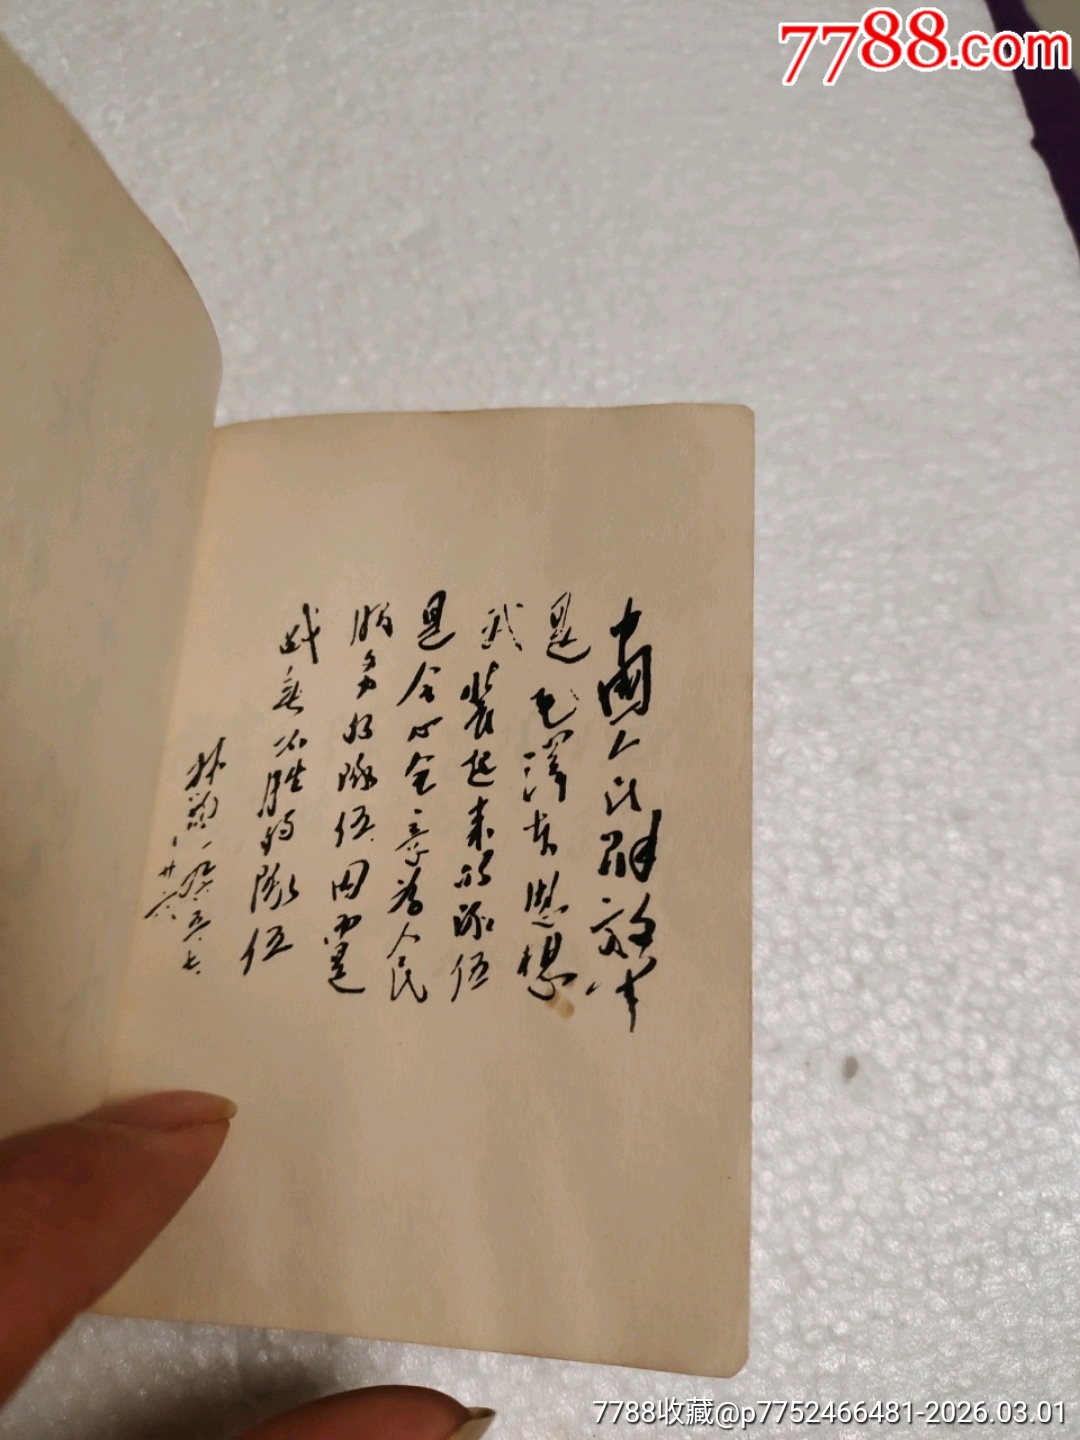 7788.com
中國人民解放军
是毛澤东思想
武装起来的隊伍
是全心全意为人民
服务的隊伍因而是
战无不胜的隊伍
林彪
一九六五、七、
廿六、
7788收藏@p7752466481-2026.03.01